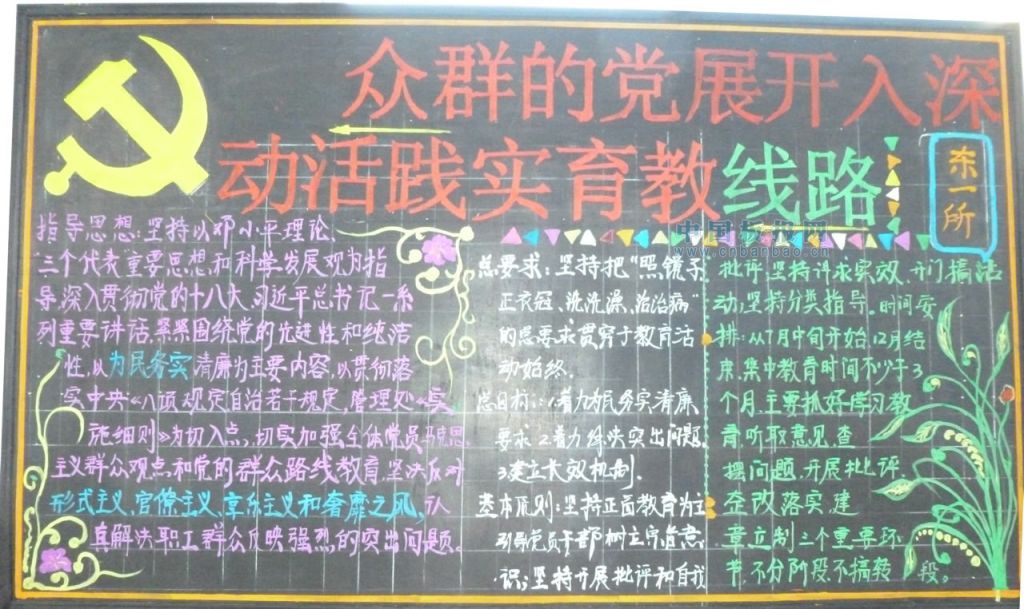 深入开展党的群众
路线教育实践活动
东一所
指导思想:坚持以邓小平理论、
三个代表重要思想和科学发展观为指
导,深入贯彻党的十八大、习近平总书记一系
列重要讲话,紧紧围绕党的先进性和纯洁
性,以为民务实清廉为主要内容,以贯彻落
实中央《八项规定自治若干规定,管理处《实
施细则》为切入点,切实加强全体党员马克思
主义群众观点和党的群众路线教育,坚决反对
形式主义,官僚主义,享乐主义和奢靡之风,认
真解决职工群众反映强烈的突出问题。
总要求:坚持把“照镜子
正衣冠、洗洗澡、治治病”
的总要求贯穿于教育活
动始终.
总目标:1着力为民务实清廉
要求 2.着力解决突出问题.
3建立长效机制.
基本原则:坚持正面教育为主
动员党员干部树立宗旨意
识;坚持开展批评和自我
批评;坚持讲求实效、开门搞活
动;坚持分类指导。时间安
排:从7月中旬开始,12月结
束,集中教育时间不少于3
个月.主要抓好学习教
育听取意见,查
摆问题,开展批评.
整改落实,建
章立制三个重要环
节,不分阶段,不搞转段。
中国板报网
www.cnbanbao.cn